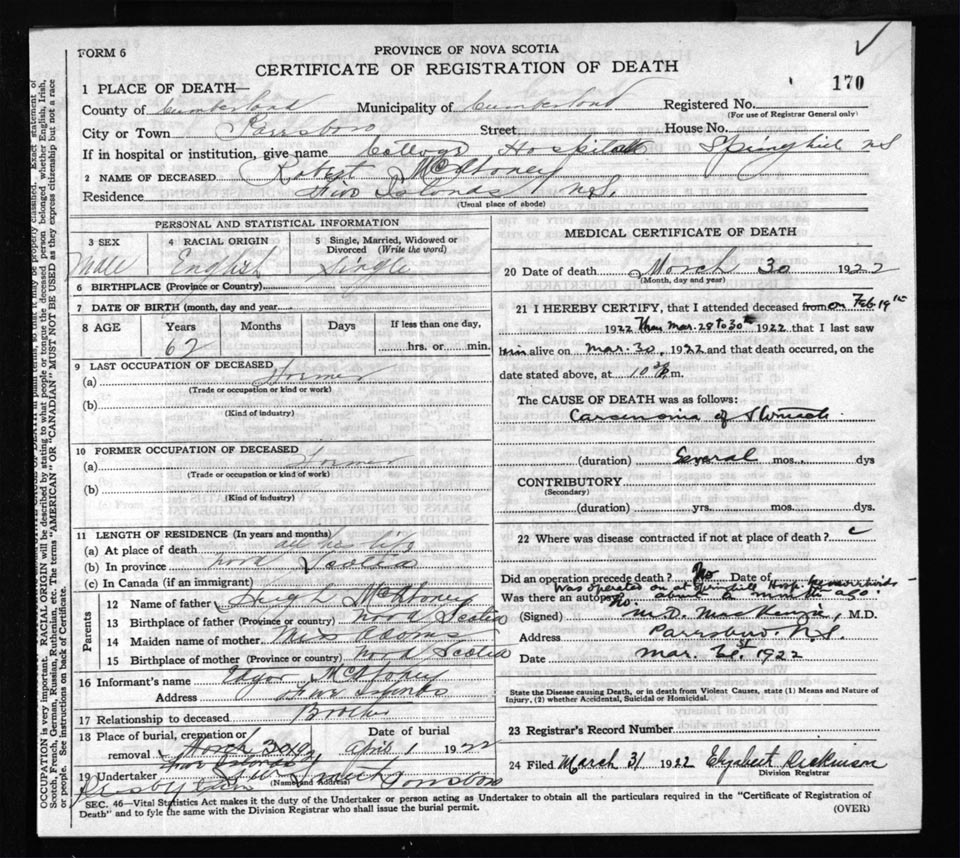 FORM 6
PROVINCE OF NOVA SCOTIA
CERTIFICATE OF REGISTRATION OF DEATH
170
1 PLACE OF DEATH—
County of Cumberland Municipality of Cumberland Registered No.
(For use of Registrar General only)
City or Town Parrsboro Street House No.
If in hospital or institution, give name Cottage Hospital Springhill NS
2 NAME OF DECEASED Robert
Residence Five Islands N.S.
(Usual place of abode)
PERSONAL AND STATISTICAL INFORMATION
3 SEX 4 RACIAL ORIGIN 5 Single, Married, Widowed or Divorced (Write the word)
Male English Single
6 BIRTHPLACE (Province or Country)
7 DATE OF BIRTH (month, day and year)
8 AGE Years Months Days If less than one day,
62 hrs. or min.
9 LAST OCCUPATION OF DECEASED
(a) Farmer
(Trade or occupation or kind or work)
(b)
(Kind of industry)
10 FORMER OCCUPATION OF DECEASED
(a) Farmer
(Trade or occupation or kind of work)
(b)
(Kind of industry)
11 LENGTH OF RESIDENCE (In years and months)
(a) At place of death all his life
(b) In province Nova Scotia
(c) In Canada (if an immigrant)
Parents
12 Name of father Hugh
13 Birthplace of father (Province or country) Nova Scotia
14 Maiden name of mother Miss Adams
15 Birthplace of mother (Province or Country) Nova Scotia
16 Informant's name Edgar
Address Five Islands
17 Relationship to deceased Brother
18 Place of burial, cremation or removal Date of burial
March 30 19 April 1 1922
Five Islands
19 Undertaker
(Name and Address)
Presbyterian
MEDICAL CERTIFICATE OF DEATH
20 Date of death March 30 1922
(Month, day and year)
21 I HEREBY CERTIFY, that I attended deceased from on Feb 19th
1922 Then Mar. 28 to 30th 1922 that I last saw
him alive on Mar. 30, 1922 and that death occurred, on the
date stated above, at 10 m.
The CAUSE OF DEATH was as follows:
Carcinoma of Stomach
(duration) Several mos. dys
CONTRIBUTORY
(Secondary)
(duration) yrs. mos. dys
22 Where was disease contracted if not at place of death?
Did an operation precede death? No Date of
Was operated on at Springhill Hosp. hemorrhoids -
Was there an autopsy? No. about months ago.
(Signed) M.D. MacKenzie, M.D.
Address Parrsboro. N.S.
Date Mar. 31st 1922
State the Disease causing Death, or in death from Violent Causes, state (1) Means and Nature of
Injury, (2) whether Accidental, Suicidal or Homicidal.
23 Registrar's Record Number
24 Filed March 31 1922 Elizabeth Dickinson
Division Registrar
SEC. 46—Vital Statistics Act makes it the duty of the Undertaker or person acting as Undertaker to obtain all the particulars required in the "Certificate of Registration of
Death" and to fyle the same with the Division Registrar who shall issue the burial permit.
(OVER)
OCCUPATION is very important. RACIAL ORIGIN will be described by stating to what people or tongue the deceased person belonged whether English, Irish,
Scotch, French, German, Russian, Ruthenian, etc. The terms "AMERICAN" OR "CANADIAN" MUST NOT BE USED as they express citizenship but not a race
or people. See instructions on back of Certificate.